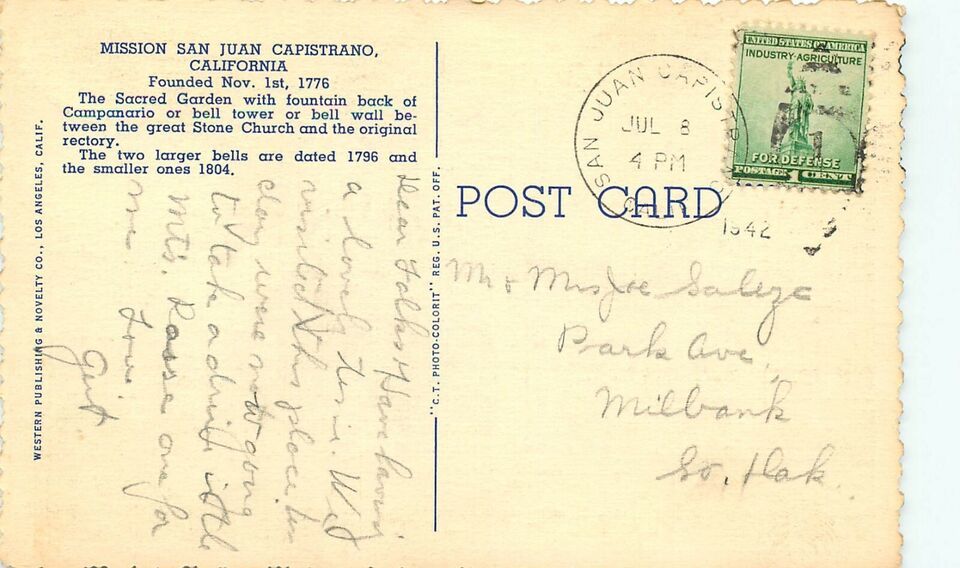 MISSION SAN JUAN CAPISTRANO,
CALIFORNIA
Founded Nov. 1st, 1776
The Sacred Garden with fountain back of
Campanario or bell tower or bell wall be-
tween the great Stone Church and the original
rectory.
The two larger bells are dated 1796 and
the smaller ones 1804.
WESTERN PUBLISHING & NOVELTY CO., LOS ANGELES, CALIF.
"C.T. PHOTO-COLORIT" REG. U.S. PAT. OFF.
Dear Folks, Have having
a lovely time. We
visited this place to
day were now going
to take a drive in the
Mts. Rasse one for
me. Love
POST CARD
SAN JUAN CAPISTR
JUL 8
4 PM
1942
UNITED STATES OF AMERICA
INDUSTRY-AGRICULTURE
FOR DEFENSE
POSTAGE 1 CENT
Mr & Mrs Joe
Park Ave,
Milbank
So. Dak.